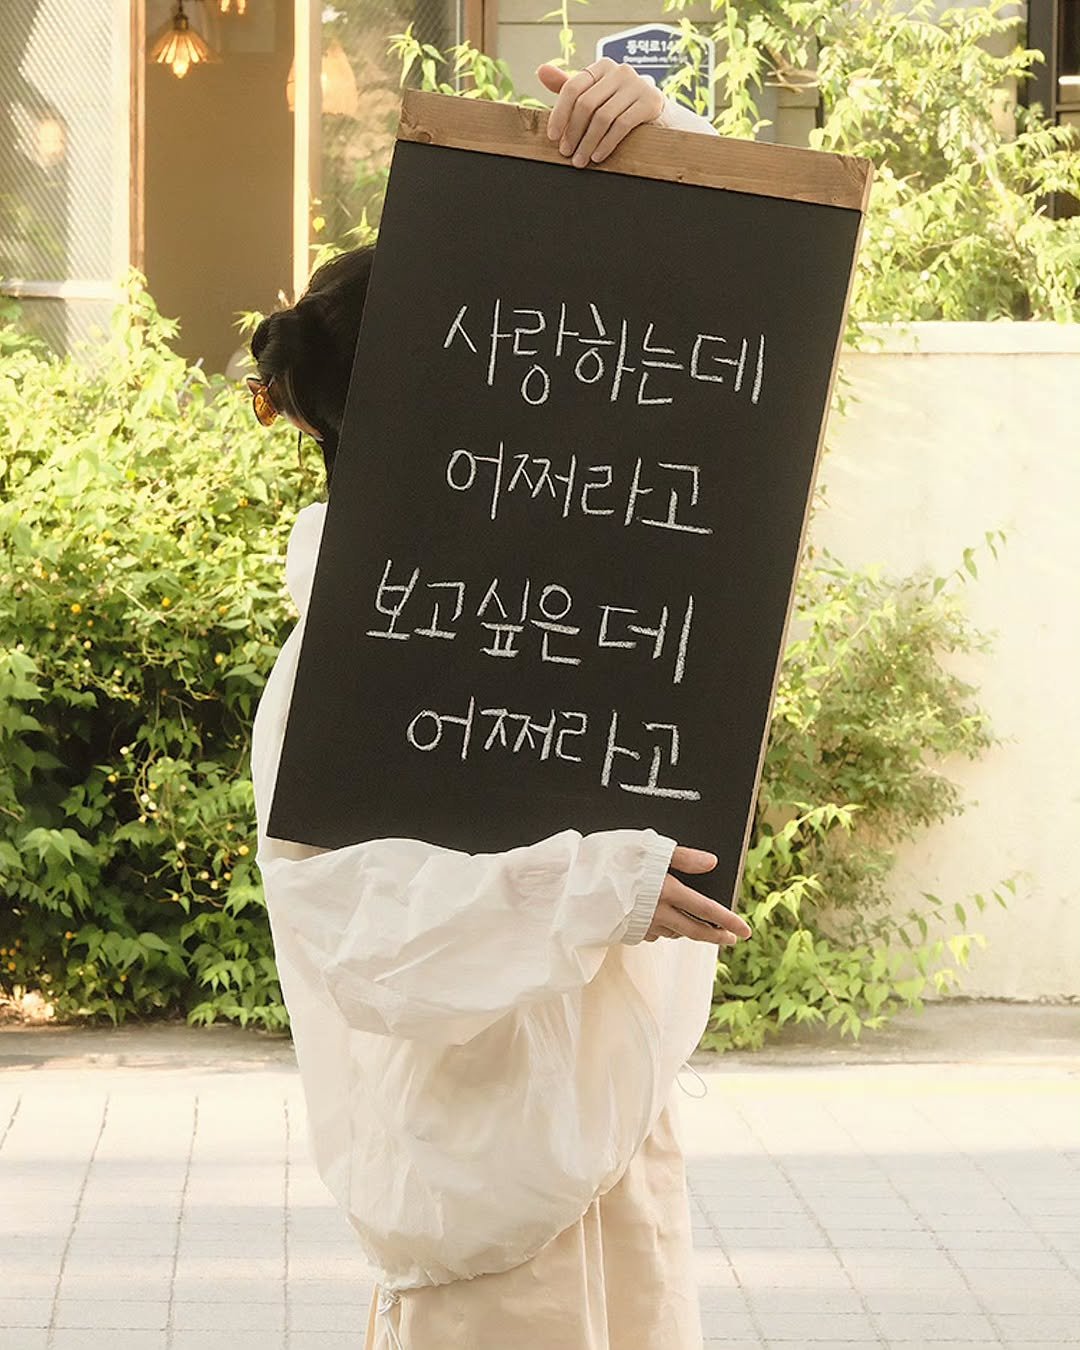 동덕로14길
사랑하는데
어쩌라고
보고싶은데
어쩌라고